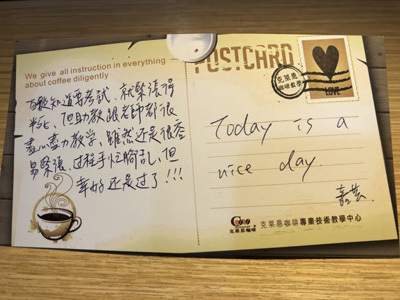 We give all instruction in everything
about coffee diligently
POSTCARD
克萊恩
咖啡藝學
LOVE
知道要考試，就緊張得
半死，但助教跟老師都很
盡心盡力教學，雖然還是很容
易緊張，過程手忙腳亂，但
幸好還是過了!!!
Today is a
nice day
克萊恩咖啡
克萊恩咖啡專業技術教學中心